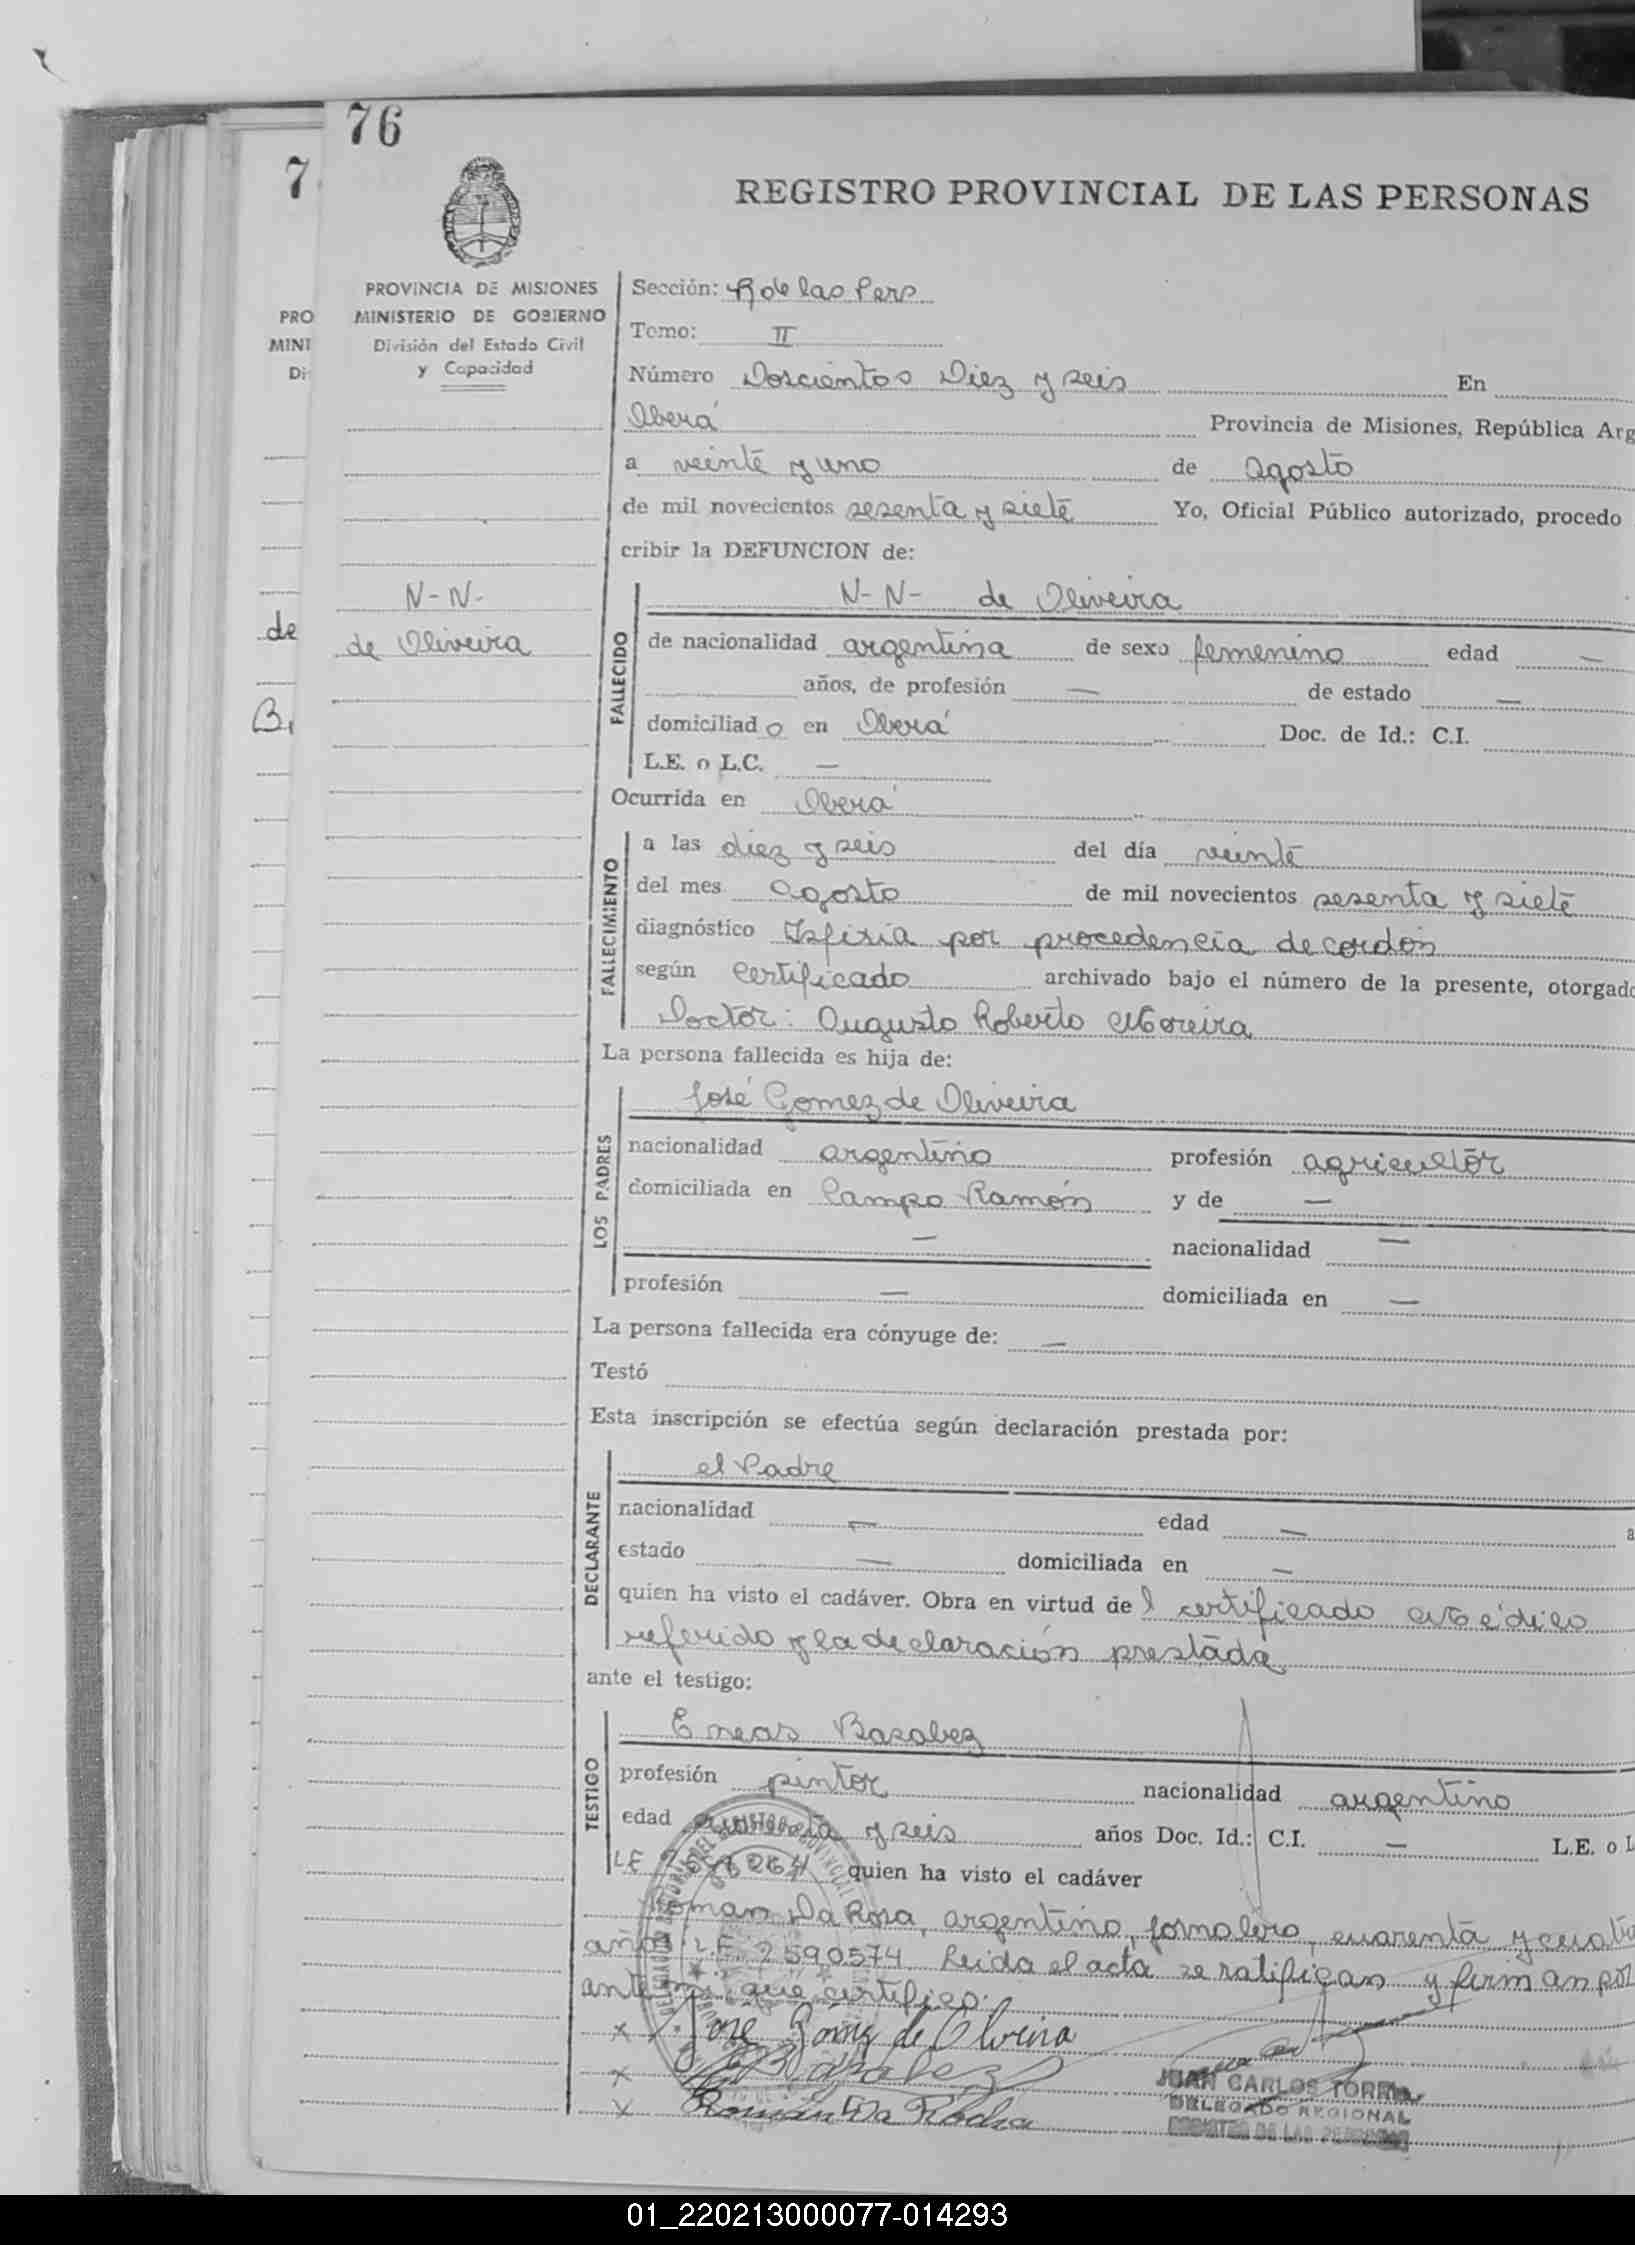 76
7
REGISTRO PROVINCIAL DE LAS PERSONAS
PROVINCIA DE MISIONES
MINISTERIO DE GOBIERNO
División del Estado Civil
y Capacidad
PRO
MINI
Di
de
B.
N-N-
de Oliveira
Sección: R de las Pers
Tomo: II
Número Doscientos Diez y seis En
Oberá Provincia de Misiones, República Arg
a veinte y uno de Agosto
de mil novecientos sesenta y siete Yo, Oficial Público autorizado, procedo
cribir la DEFUNCION de:
FALLECIDO
N-N- de Oliveira
de nacionalidad argentina de sexo femenino edad —
años, de profesión — de estado —
domiciliado en Oberá Doc. de Id.: C.I.
L.E. o L.C. —
Ocurrida en Oberá
FALLECIMIENTO
a las diez y seis del día veinte
del mes Agosto de mil novecientos sesenta y siete
diagnóstico Asfixia por procedencia de cordón
según Certificado archivado bajo el número de la presente, otorgado
Doctor: Augusto Roberto Moreira
La persona fallecida es hija de:
LOS PADRES
José Gomez de Oliveira
nacionalidad argentino profesión agricultor
domiciliada en Campo Ramón y de —
— nacionalidad —
profesión — domiciliada en —
La persona fallecida era cónyuge de: —
Testó
Esta inscripción se efectúa según declaración prestada por:
DECLARANTE
el Padre
nacionalidad — edad — a
estado — domiciliada en —
quien ha visto el cadáver. Obra en virtud del certificado médico
referido y la declaración prestada
ante el testigo:
TESTIGO
Eneas Basabez
profesión pintor nacionalidad argentino
edad y seis años Doc. Id.: C.I. — L.E. o L
LE quien ha visto el cadáver
Roman Da Rosa, argentino, jornalero, cuarenta y cuatro
años L.E. 2590574 Leida el acta se ratifican y firman por
ante mi que certifico.
x José Gómez de Oliveira
x Basabez
x Román Da Rocha
JUAN CARLOS TORRES
DELEGADO REGIONAL
REGISTRO DE LAS PERSONAS
01_220213000077-014293